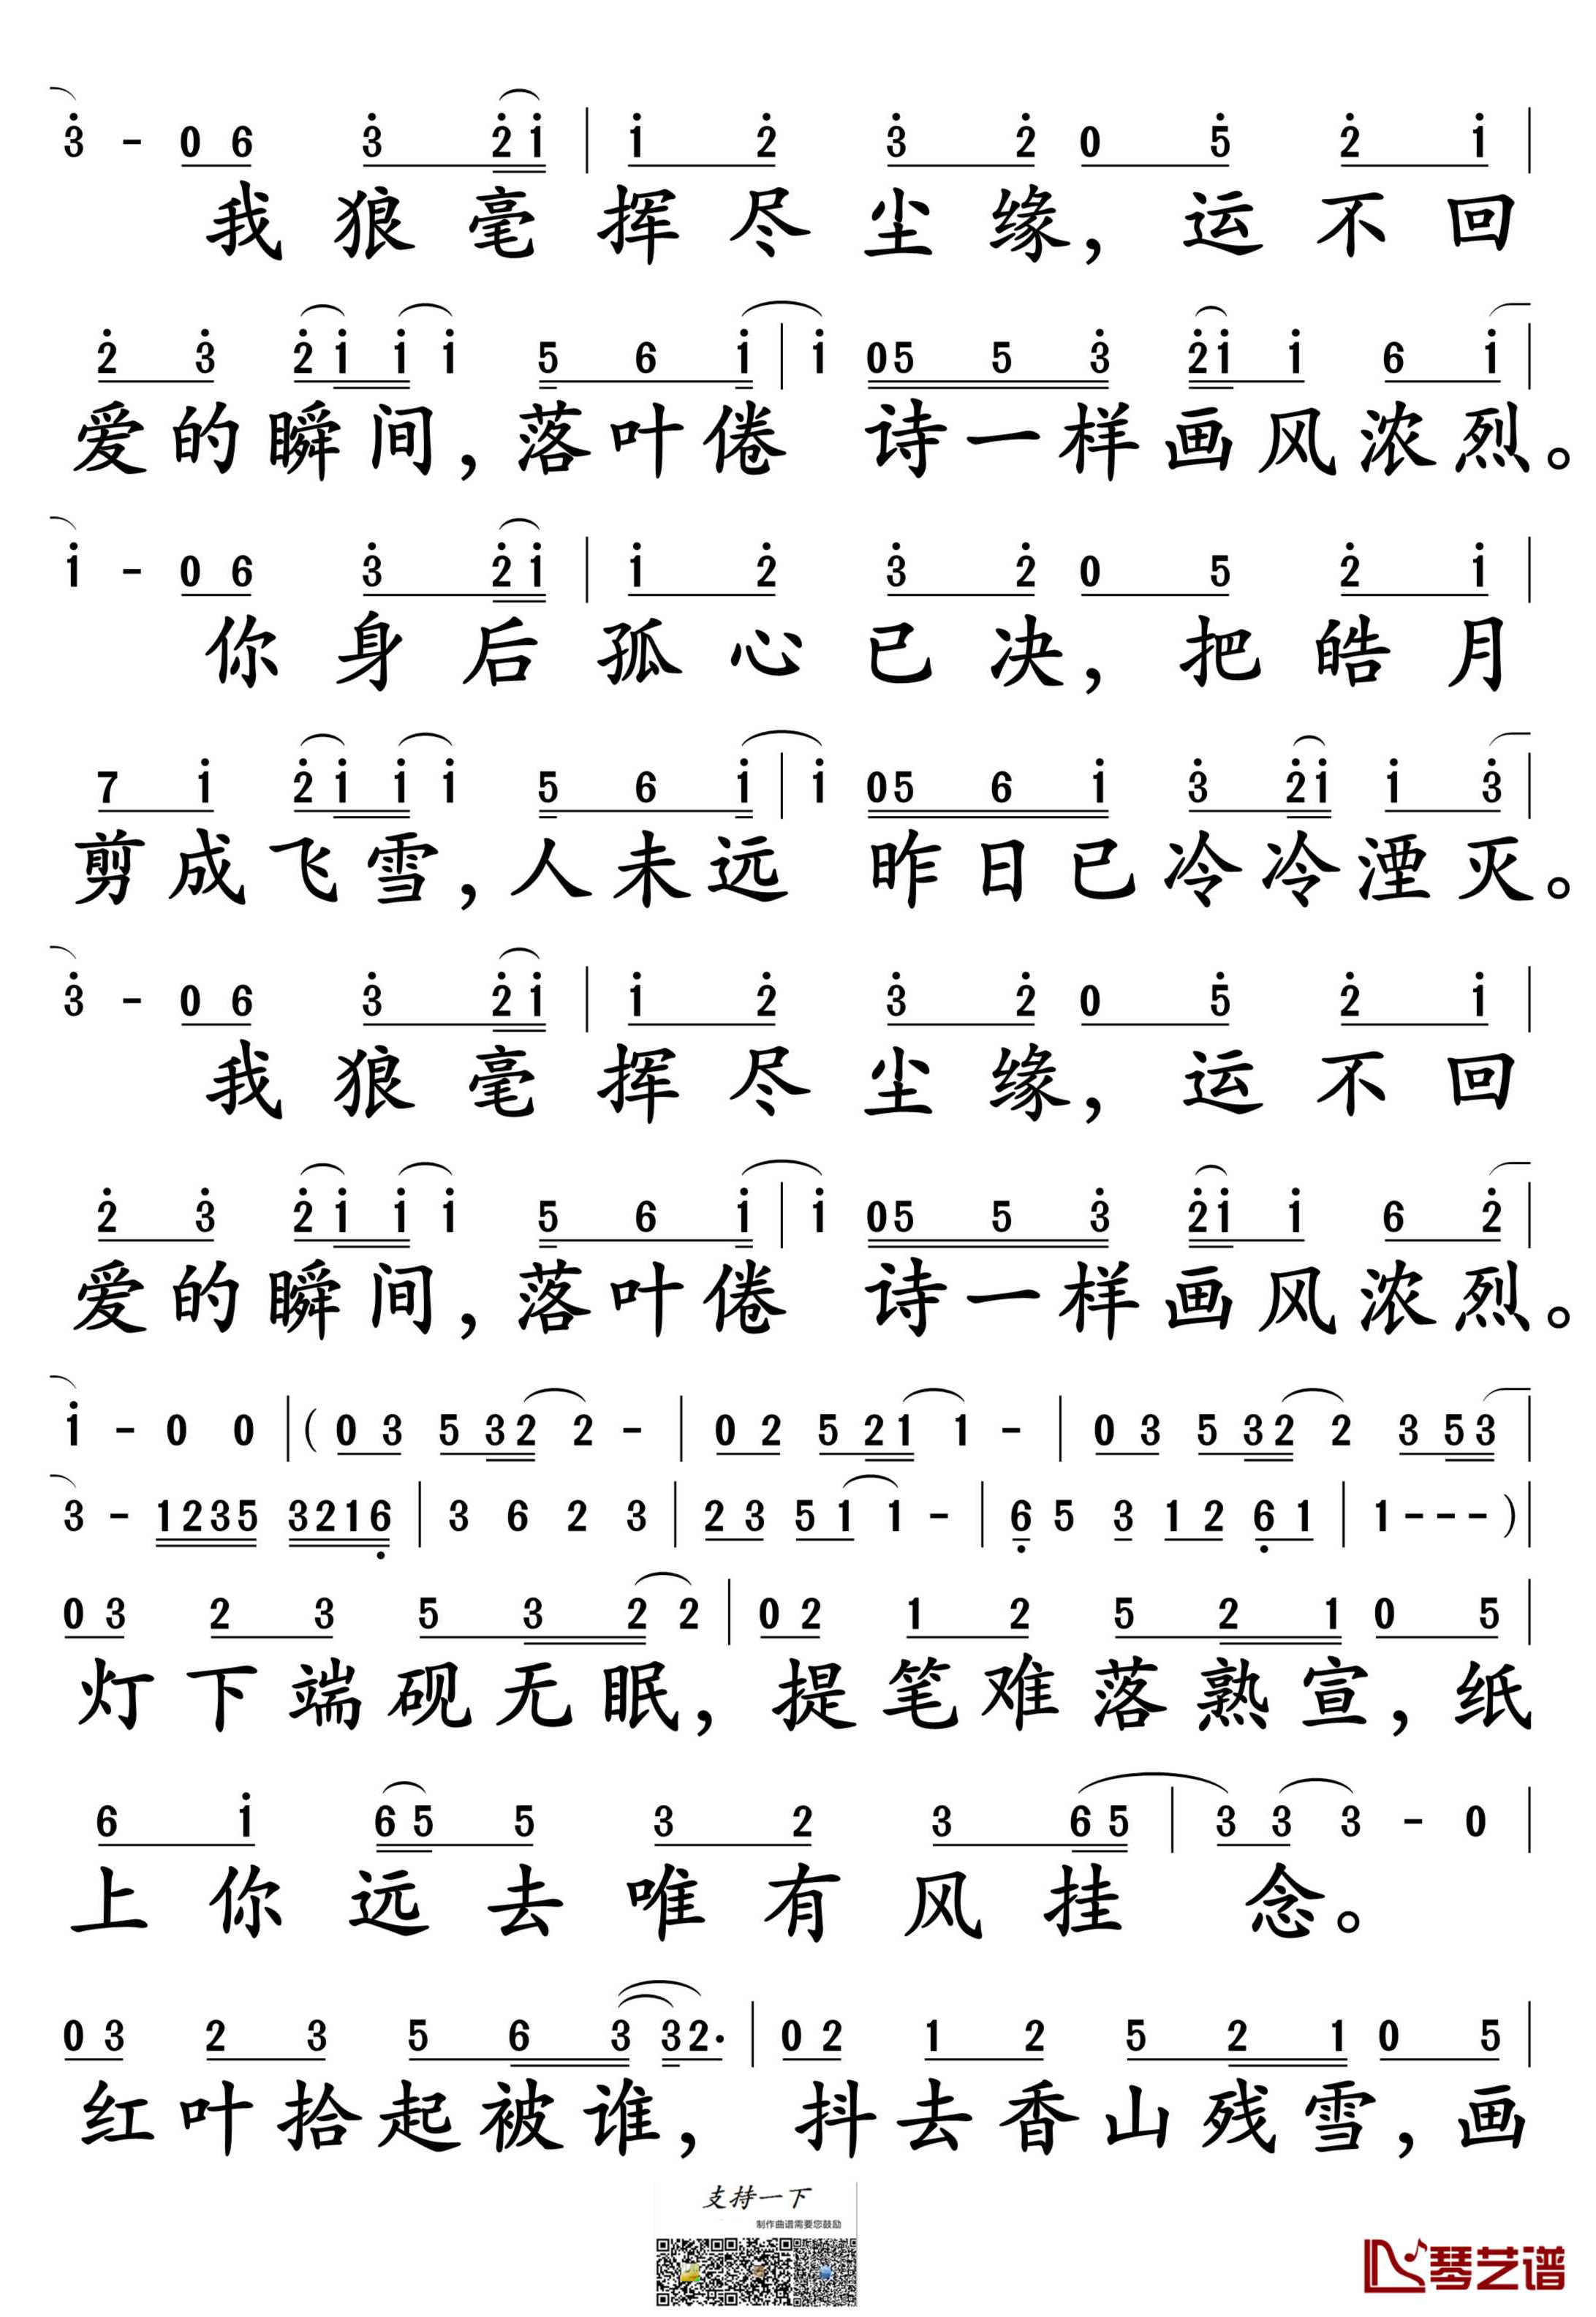 3̇ - 0 6 3̇ 2̇ 1̇ | 1̇ 2̇ 3̇ 2̇ 0 5̇ 2̇ 1̇ |
我狼毫挥尽尘缘，运不回
2̇ 3̇ 2̇ 1̇ 1̇ 1̇ 5 6 1̇ | 1̇ 0 5 5 3̇ 2̇ 1̇ 1̇ 6 1̇ |
爱的瞬间，落叶倦 诗一样画风浓烈。
1̇ - 0 6 3̇ 2̇ 1̇ | 1̇ 2̇ 3̇ 2̇ 0 5 2̇ 1̇ |
你身后孤心已决，把皓月
7 1̇ 2̇ 1̇ 1̇ 1̇ 5 6 1̇ | 1̇ 0 5 6 1̇ 3̇ 2̇ 1̇ 1̇ 3̇ |
剪成飞雪，人未远 昨日已冷冷湮灭。
3̇ - 0 6 3̇ 2̇ 1̇ | 1̇ 2̇ 3̇ 2̇ 0 5̇ 2̇ 1̇ |
我狼毫挥尽尘缘，运不回
2̇ 3̇ 2̇ 1̇ 1̇ 1̇ 5 6 1̇ | 1̇ 0 5 5 3̇ 2̇ 1̇ 1̇ 6 2̇ |
爱的瞬间，落叶倦 诗一样画风浓烈。
1̇ - 0 0 | ( 0 3 5 3 2 2 - | 0 2 5 2 1 1 - | 0 3 5 3 2 2 3 5 3 |
3 - 1 2 3 5 3 2 1 6̣ | 3 6 2 3 | 2 3 5 1 1 - | 6̣ 5 3 1 2 6̣ 1 | 1 - - - ) |
0 3 2 3 5 3 2 2 | 0 2 1 2 5 2 1 0 5 |
灯下端砚无眠，提笔难落熟宣，纸
6 1̇ 6 5 5 3 2 3 6 5 | 3 3 3 - 0 |
上你远去唯有风挂 念。
0 3 2 3 5 6 3 3 2 · | 0 2 1 2 5 2 1 0 5 |
红叶拾起被谁， 抖去香山残雪，画
支持一下
制作曲谱需要您鼓励
琴艺谱